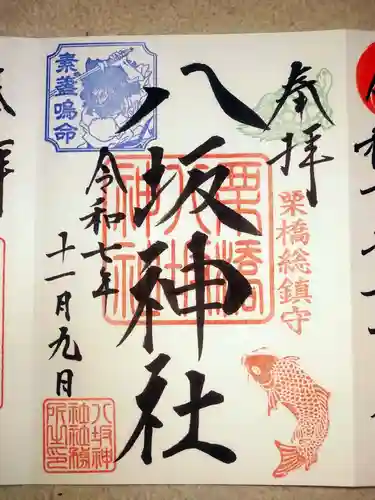 奉拝
八坂神社
令和七年
十一月九日
栗橋総鎮守
素盞嗚命
栗橋
八坂
神社
八坂神
社社務
所之印